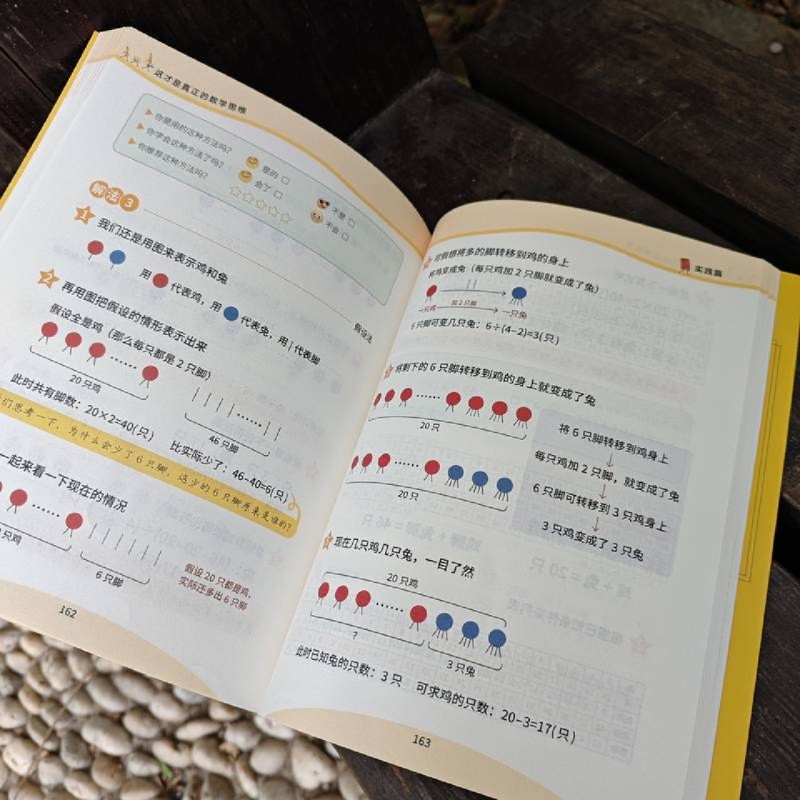 这才是真正的数学思维
你是用的这种方法吗？ 是的 不是
你学会这种方法了吗？ 会了 不会
你推荐这种方法吗？
解法3
假设法
1 我们还是用图来表示鸡和兔
用 代表鸡，用 代表兔，用 | 代表脚
2 再用图把假设的情形表示出来
假设全是鸡（那么每只都是 2 只脚）
20 只鸡
46 只脚
此时共有脚数：20×2=40(只) 比实际少了：46-40=6(只)
们思考一下，为什么会少了 6 只脚，这少的 6 只脚原来是谁的？
一起来看一下现在的情况
只鸡
6 只脚
假设 20 只都是鸡，
实际还多出 6 只脚
162
实践篇
假想将多的脚转移到鸡的身上
将鸡变成兔（每只鸡加 2 只脚就变成了兔）
一只鸡 加 2 只脚 一只兔
6 只脚可变几只兔：6÷(4-2)=3(只)
将剩下的 6 只脚转移到鸡的身上就变成了兔
20 只
20 只
将 6 只脚转移到鸡身上
每只鸡加 2 只脚，就变成了兔
6 只脚可转移到 3 只鸡身上
3 只鸡变成了 3 只兔
现在几只鸡几只兔，一目了然
20 只鸡
?
3 只兔
此时已知兔的只数：3 只 可求鸡的只数：20-3=17(只)
163